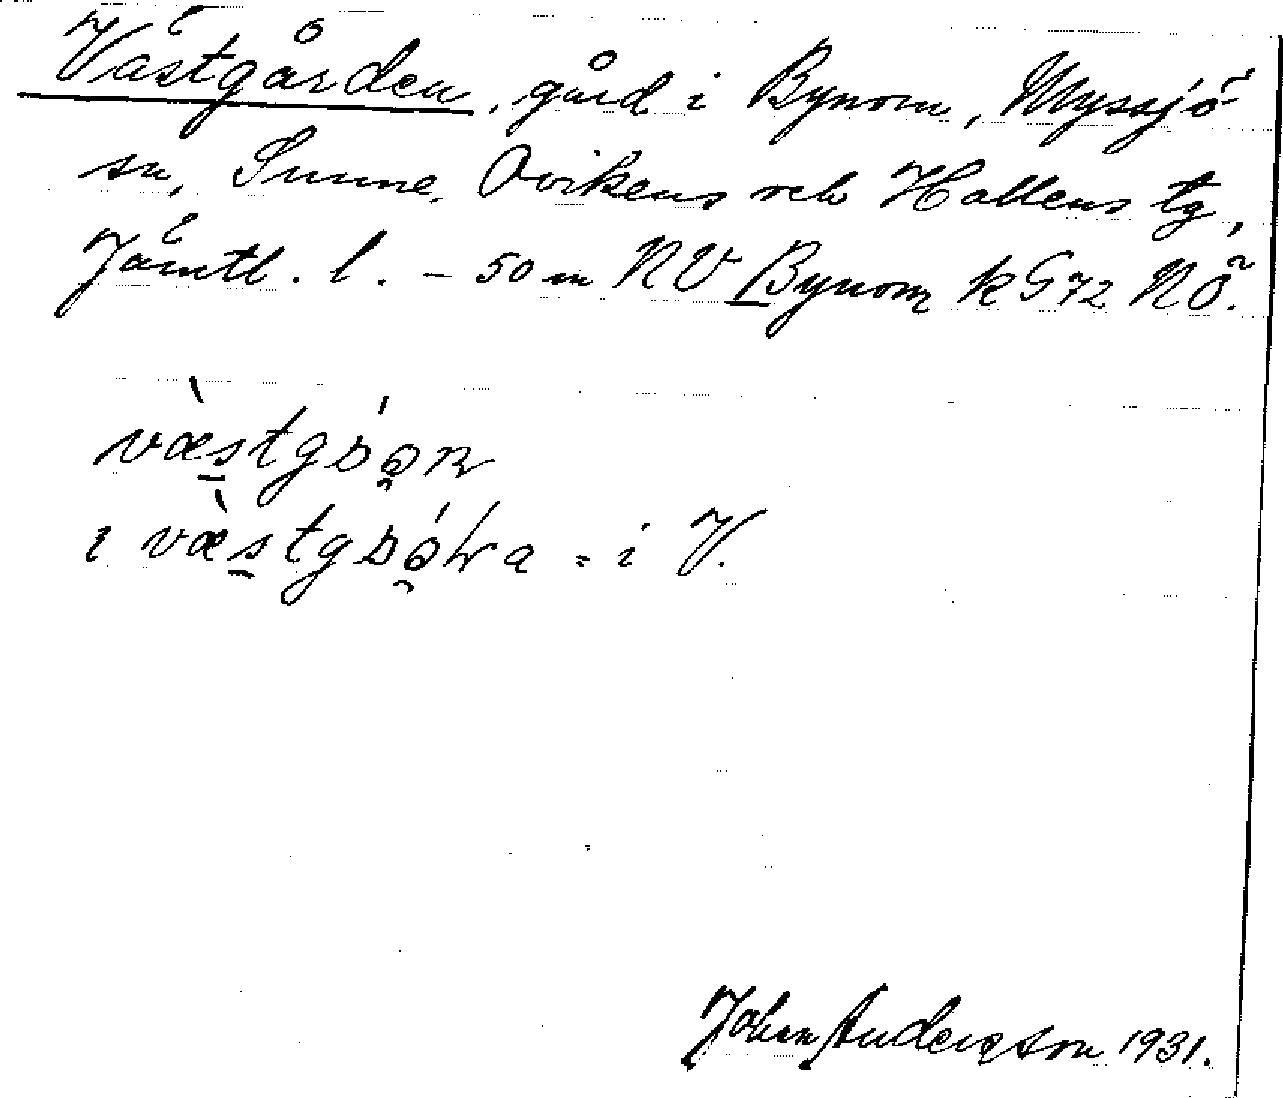 Västgården, gård i Bynom, Myssjö
sn, Sunne, Ovikens och Hallens tg,
Jämtl. l. – 50 m NV Bynom k G72 NÖ.
i V.
Johan Anderson 1931.